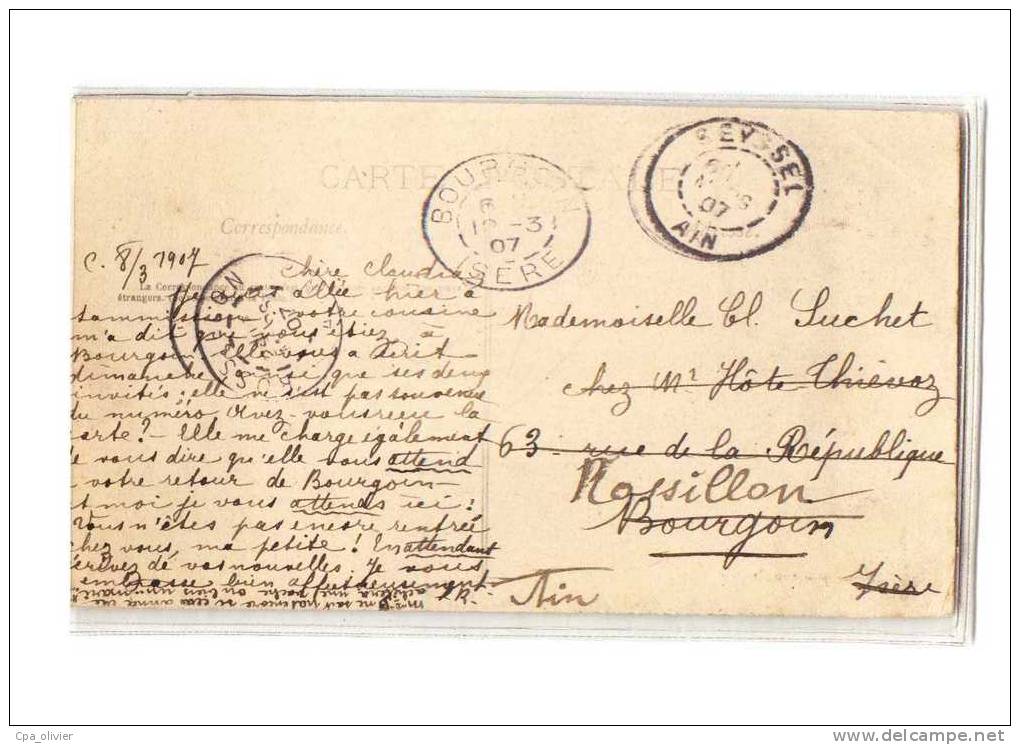 CARTE POSTALE
Correspondance.
BOURGOIN
ISÈRE
-3
07
SEYSSEL
07
AIN
C. 8/3 1907
Chère Claudia,
Je suis allée hier à
votre cousine
m'a dit que vous étiez à
Bourgoin elle vous a écrit
dimanche ainsi que ses deux
invités; elle n'est pas souvenue
du numéro. Avez-vous reçu la
carte? - Elle me charge également
de vous dire qu'elle vous attend
à votre retour de Bourgoin-
et moi je vous attends ici!
Vous n'êtes pas encore rentrée
chez vous, ma petite! En attendant
de vos nouvelles. Je vous
embrasse bien affectueusement
Mademoiselle Cl. Suchet
chez Mr Hôte Thiévoz
63 - rue de la République
Rossillon
Bourgoin
Isère
Ain
Cpa_olivier
www.delcampe.net